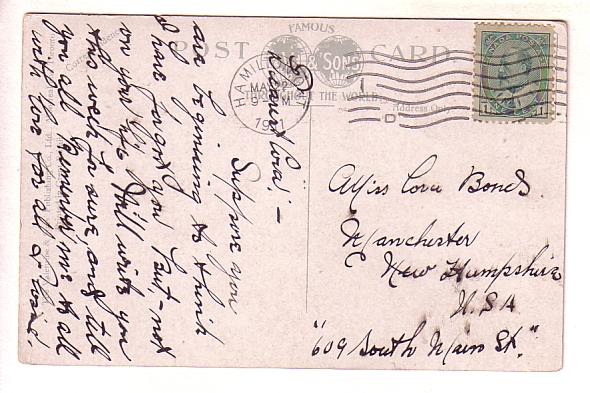 FAMOUS
POST CARD
& SONS
THROUGHOUT THE WORLD
Address Only
HAMILTON
MA
9 - M
1911
CANADA POSTAGE
1 1
Dearest Cora; -
Suppose you
are beginning to think
I have forgot you but - not
on your life. Will write you
this week for sure and tell
you all. Remember me to all
with love for all &
Miss Cora Bond
Manchester
New Hampshire
U.S.A
"609 South Main St."